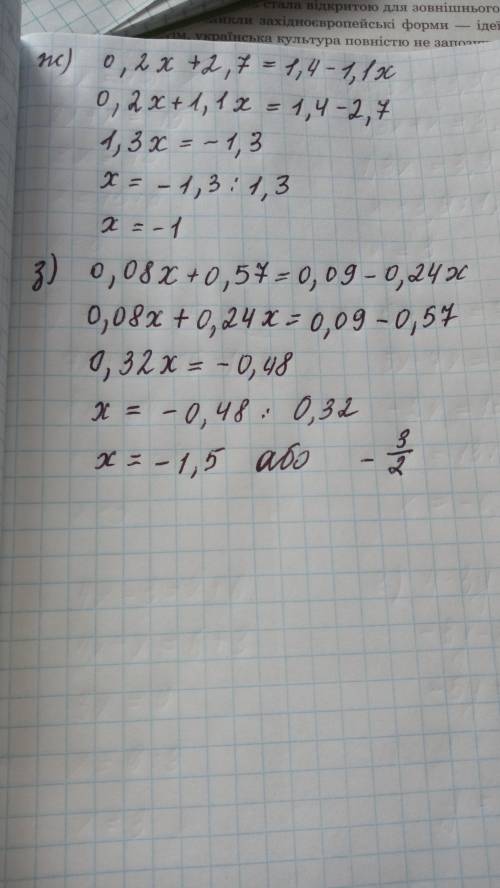 стала відкритою для зовнішнього
никли західноєвропейські форми — ідеї
українська культура повністю не
ж) 0,2x+2,7=1,4-1,1x
0,2x+1,1x=1,4-2,7
1,3x=-1,3
x=-1,3:1,3
x=-1
з) 0,08x+0,57=0,09-0,24x
0,08x+0,24x=0,09-0,57
0,32x=-0,48
x=-0,48:0,32
x=-1,5 або -3/2